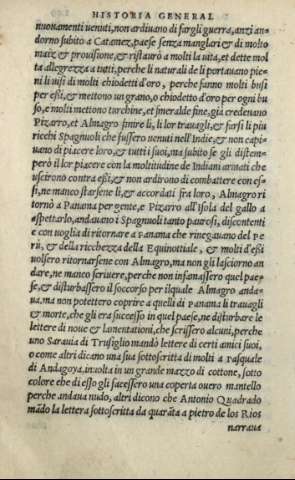 HISTORIA GENERAL
nuouamenti uenuti, non ardiuano di fargli guerra, anzi an
dorno subito a Catamez, paese senza manglari & di molto
maiz & prouisione, & ristaurò a molti la uita, et dette mol
ta allegrezza a tutti, perche li naturali de li portauano pie
ni li uisi di molti chiodetti d'oro, perche fanno molti busi
per essi, & mettono un grano, o chiodetto d'oro per ogni bu
so, e molti mettono turchine, et smeralde fine, già credenano
Pizarro, et Almagro finire li, li lor trauagli, & farsi li piu
ricchi Spagnuoli che fussero uenuti nell'Indie, & non capi=
uano di piacere loro, & tutti i suoi, ma subito se gli distem=
però il lor piacere con la moltitudine de Indiani armati che
uscirono contra essi, & non ardirono di combattere con es=
si, ne manco starsene li, & accordati fra loro, Almagro ri
tornò a Panama per gente, e Pizarro all'Isola del gallo a
aspettarlo, andauano i Spagnuoli tanto paurosi, discontenti
e con uoglia di ritornare a panama che rinegauano del Pe
rù, & della ricchezza della Equinottiale, & molti d'essi
uolsero ritornarsene con Almagro, ma non gli lasciorno an
dare, ne manco scriuere, perche non infanassero quel pae=
se, & disturbassero il soccorso per ilquale Almagro anda=
ua, ma non potettero coprire a quelli di Panama li trauagli
& morte, che gli era successo in quel paese, ne disturbare le
lettere di noue & lamentationi, che scrissero alcuni, perche
uno Sarauia di Trusiglio mandò lettere di certi amici suoi,
o come altri dicano una sua sottoscritta di molti a Pasquale
di Andagoya, inuolta in un grande mazzo di cottone, sotto
colore che di esso gli facessero una coperta ouero mantello
perche andaua nudo, altri dicono che Antonio Quadrado
mādò la lettera sottoscritta da quarāta a pietro de los Rios
narraua